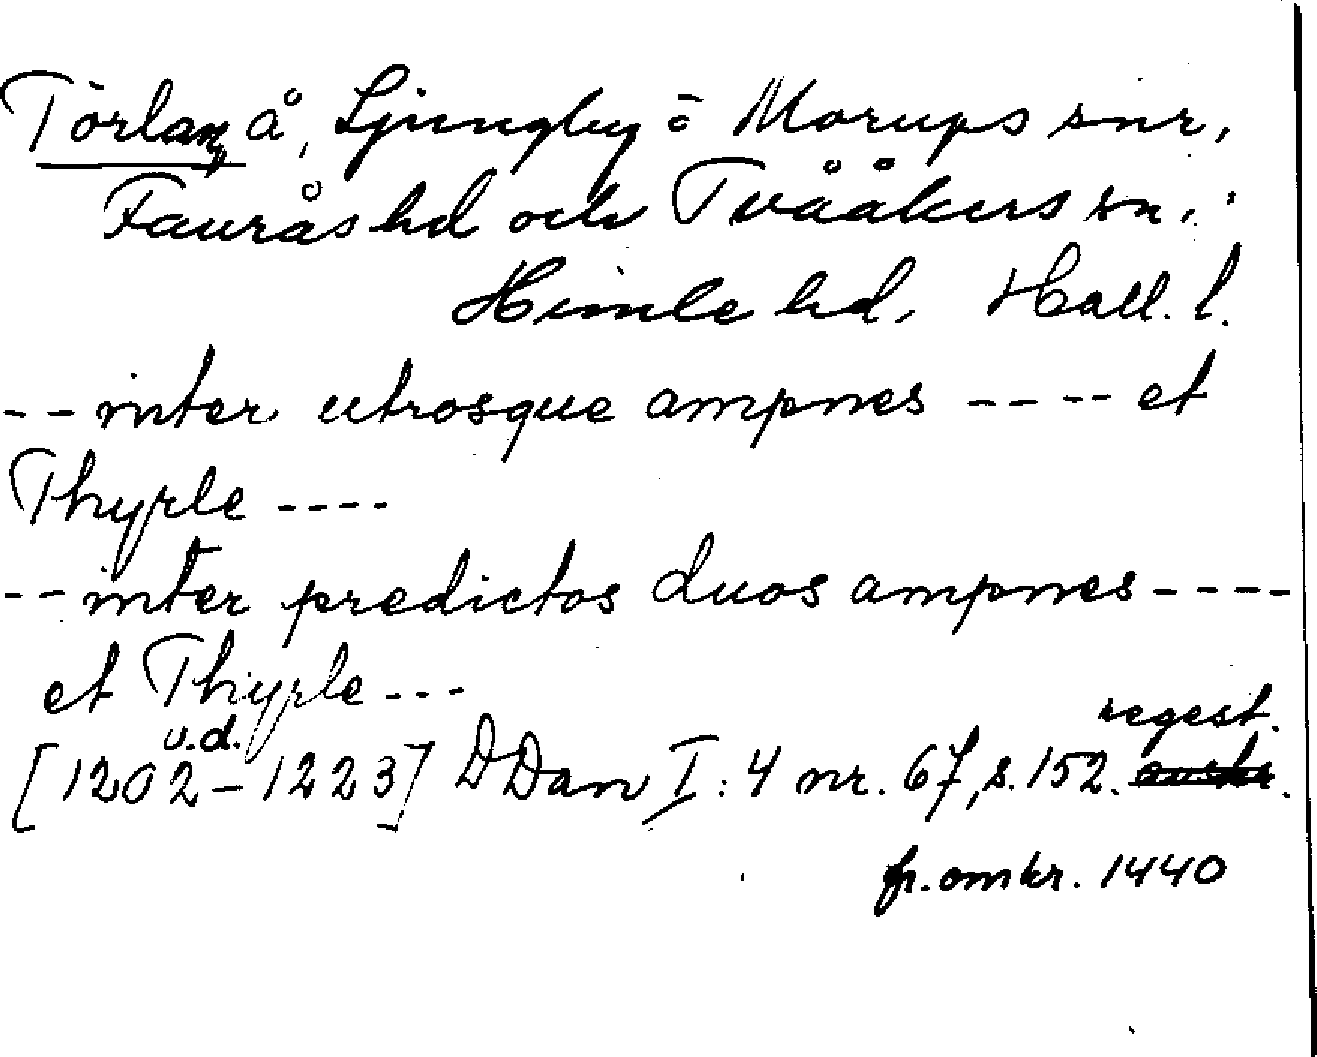 Törlan, å, Ljungby o Morups snr,
Faurås hd och Tvååkers sn,
Himle hd, Hall. l.
-- inter utrosque ampnes ---- et
Thyrle ----
-- inter predictos duos ampnes ----
et Thyrle ---
u.d. regest.
[1202-1223] DDan I:4 nr. 67, s. 152.
fr. omkr. 1440